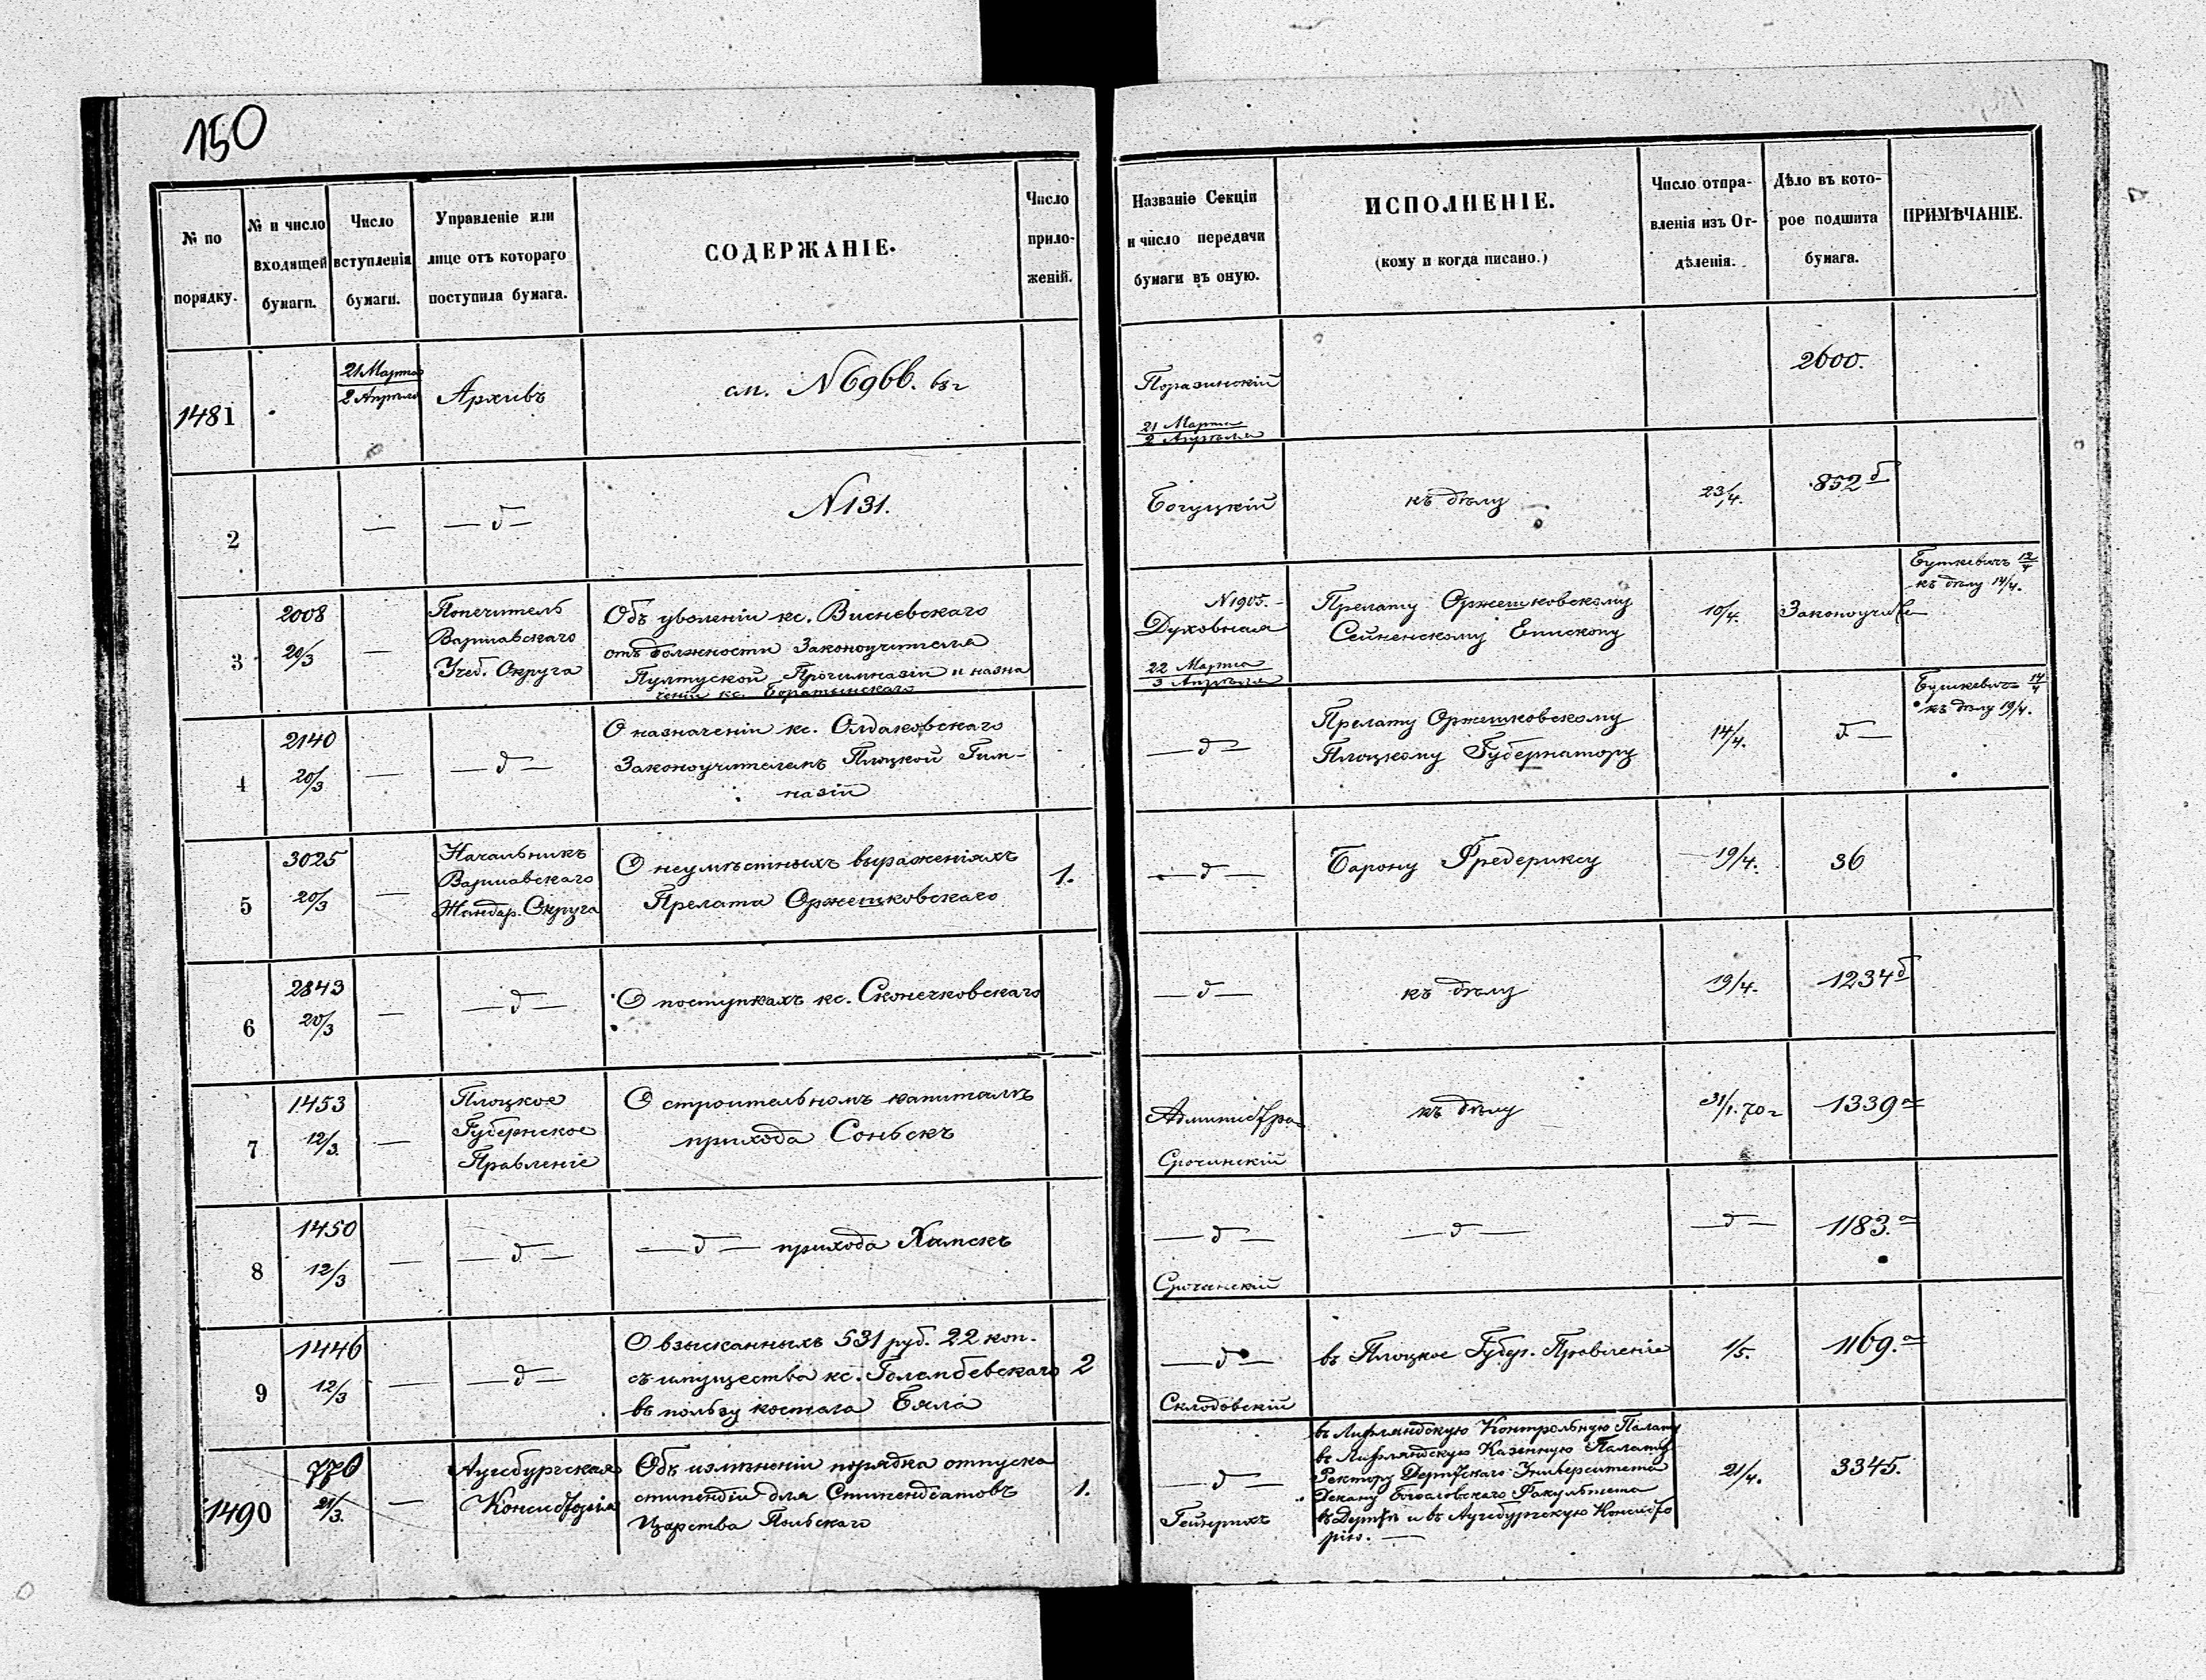 150
№ по порядку.
№ и число входящей бумаги.
Число вступленія бумаги.
Управленіе или лице отъ котораго поступила бумага.
СОДЕРЖАНІЕ.
Число приложеній.
Названіе Секціи и число передачи бумаги въ оную.
ИСПОЛНЕНІЕ.
(кому и когда писано.)
Число отправленія изъ Отдѣленія.
Дѣло въ которое подшита бумага.
ПРИМѢЧАНІЕ.
1481
21 Марта
2 Апрѣля
Архивъ
см. N 696b. 68 г
21 Марта
2 Апрѣля
2600.
2
—
— д —
N 131.
Богуцкій
къ дѣлу
23/4.
852 б
3
2008
20/3
—
Попечитель
Варшавскаго
Учеб. Округа
Объ уволеніи кс. Висневскаго
отъ должности Законоучителя
Пултуской Прогимназіи и назна
ченіи кс. Боратынскаго
N 1905.
Духовная
22 Марта
3 Апрѣля
Прелату Оржешковскому
Сейненскому Епископу
10/4.
Законоучите
Буткевичъ 12/4
къ дѣлу 14/4.
4
2140
20/3
—
— д —
О назначеніи кс. Олдаковскаго
Законоучителемъ Плоцкой Гим-
назіи
— д —
Прелату Оржешковскому
Плоцкому Губернатору
14/4.
д —
Буткевичъ 14/4
къ дѣлу 19/4.
5
3025
20/3
—
Начальникъ
Варшавскаго
Жандар. Округа
О неумѣстныхъ выраженіяхъ
Прелата Оржешковскаго
1.
— д —
Барону Фредериксу
19/4.
36
6
2843
20/3
—
— д —
О поступкахъ кс. Сконечковскаго
— д —
къ дѣлу
19/4.
1234 б
7
1453
12/3.
—
Плоцкое
Губернское
Правленіе
О строительномъ капиталѣ
прихода Соньскъ
Администра
Срочинскій
къ дѣлу
31/1. 70 г
1339 а
8
1450
12/3
—
— д —
— д — прихода Хамскъ
— д —
Срочинскій
— д —
— д —
1183. а
9
1446
12/3
—
— д —
О взысканныхъ 531 руб. 22 коп.
съ имущества кс. Голембевскаго
въ пользу костела Бяла
2
— д —
Склодовскій
въ Плоцкое Губер. Правленіе
1/5.
1169. а
1490
770
21/3.
—
Аугсбургская
Консисторія
Объ измѣненіи порядка отпуска
стипендіи для Стипендіатовъ
Царства Польскаго
1.
— д —
Гейнрихъ
въ Лифляндскую Контрольную Палату
въ Лифляндскую Казенную Палату
Ректору Дерптскаго Университета
Декану Богословскаго Факультета
въ Дерптѣ и въ Аугсбургскую Консисто
рію. —
21/4.
3345.